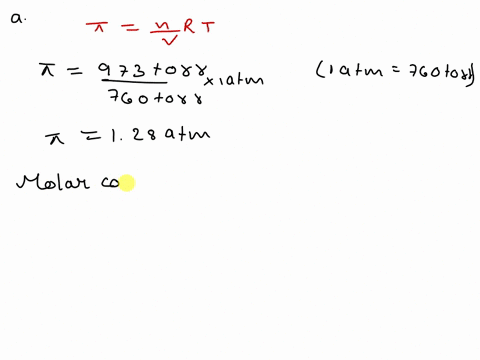 a.
π = n/V RT
π = 973 torr / 760 torr × 1 atm (1 atm = 760 torr)
π = 1.28 atm
Molar co